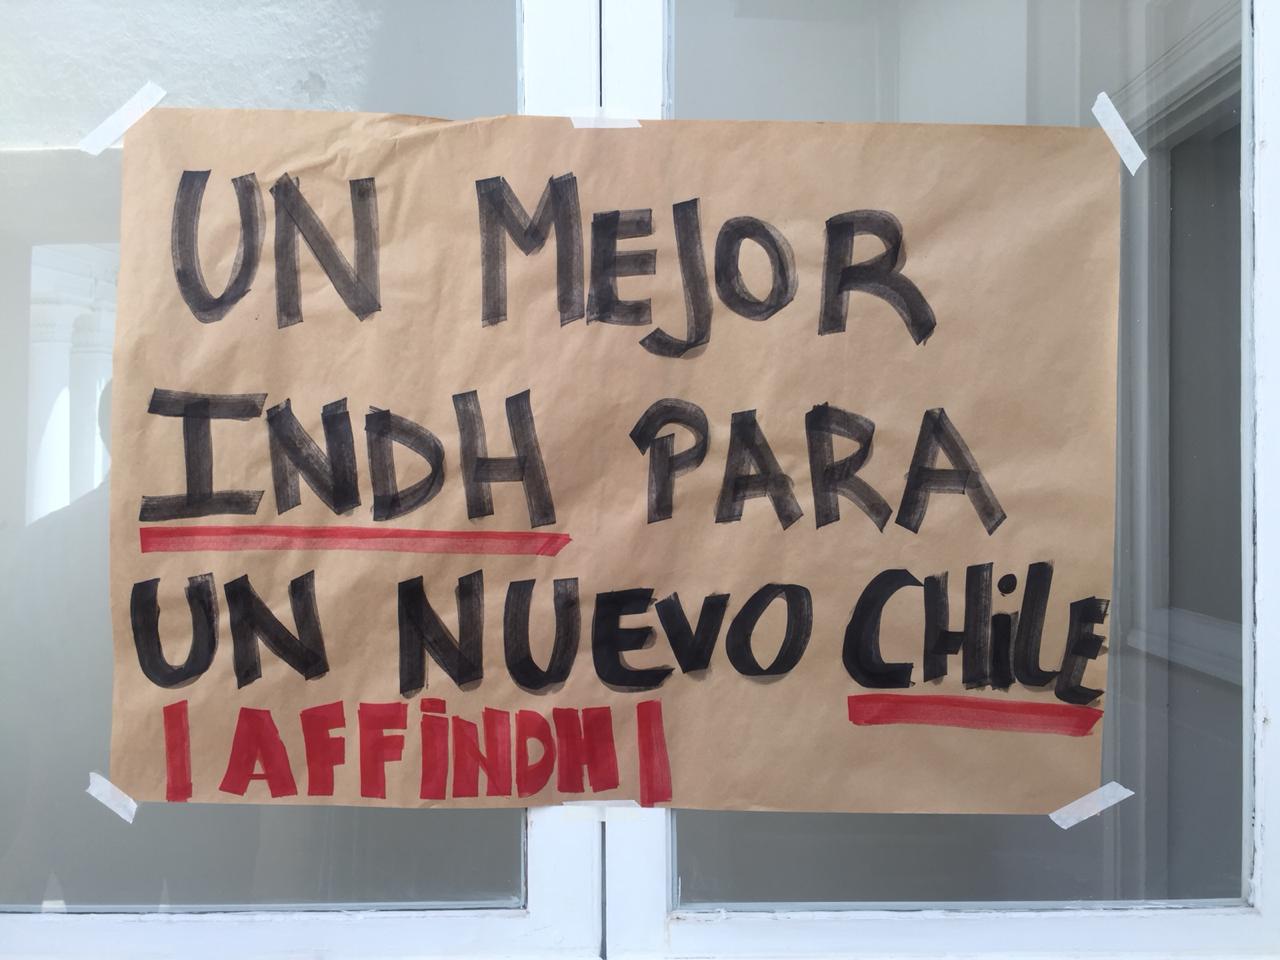 UN MEJOR
INDH PARA
UN NUEVO CHiLE
| AFFiNDH |